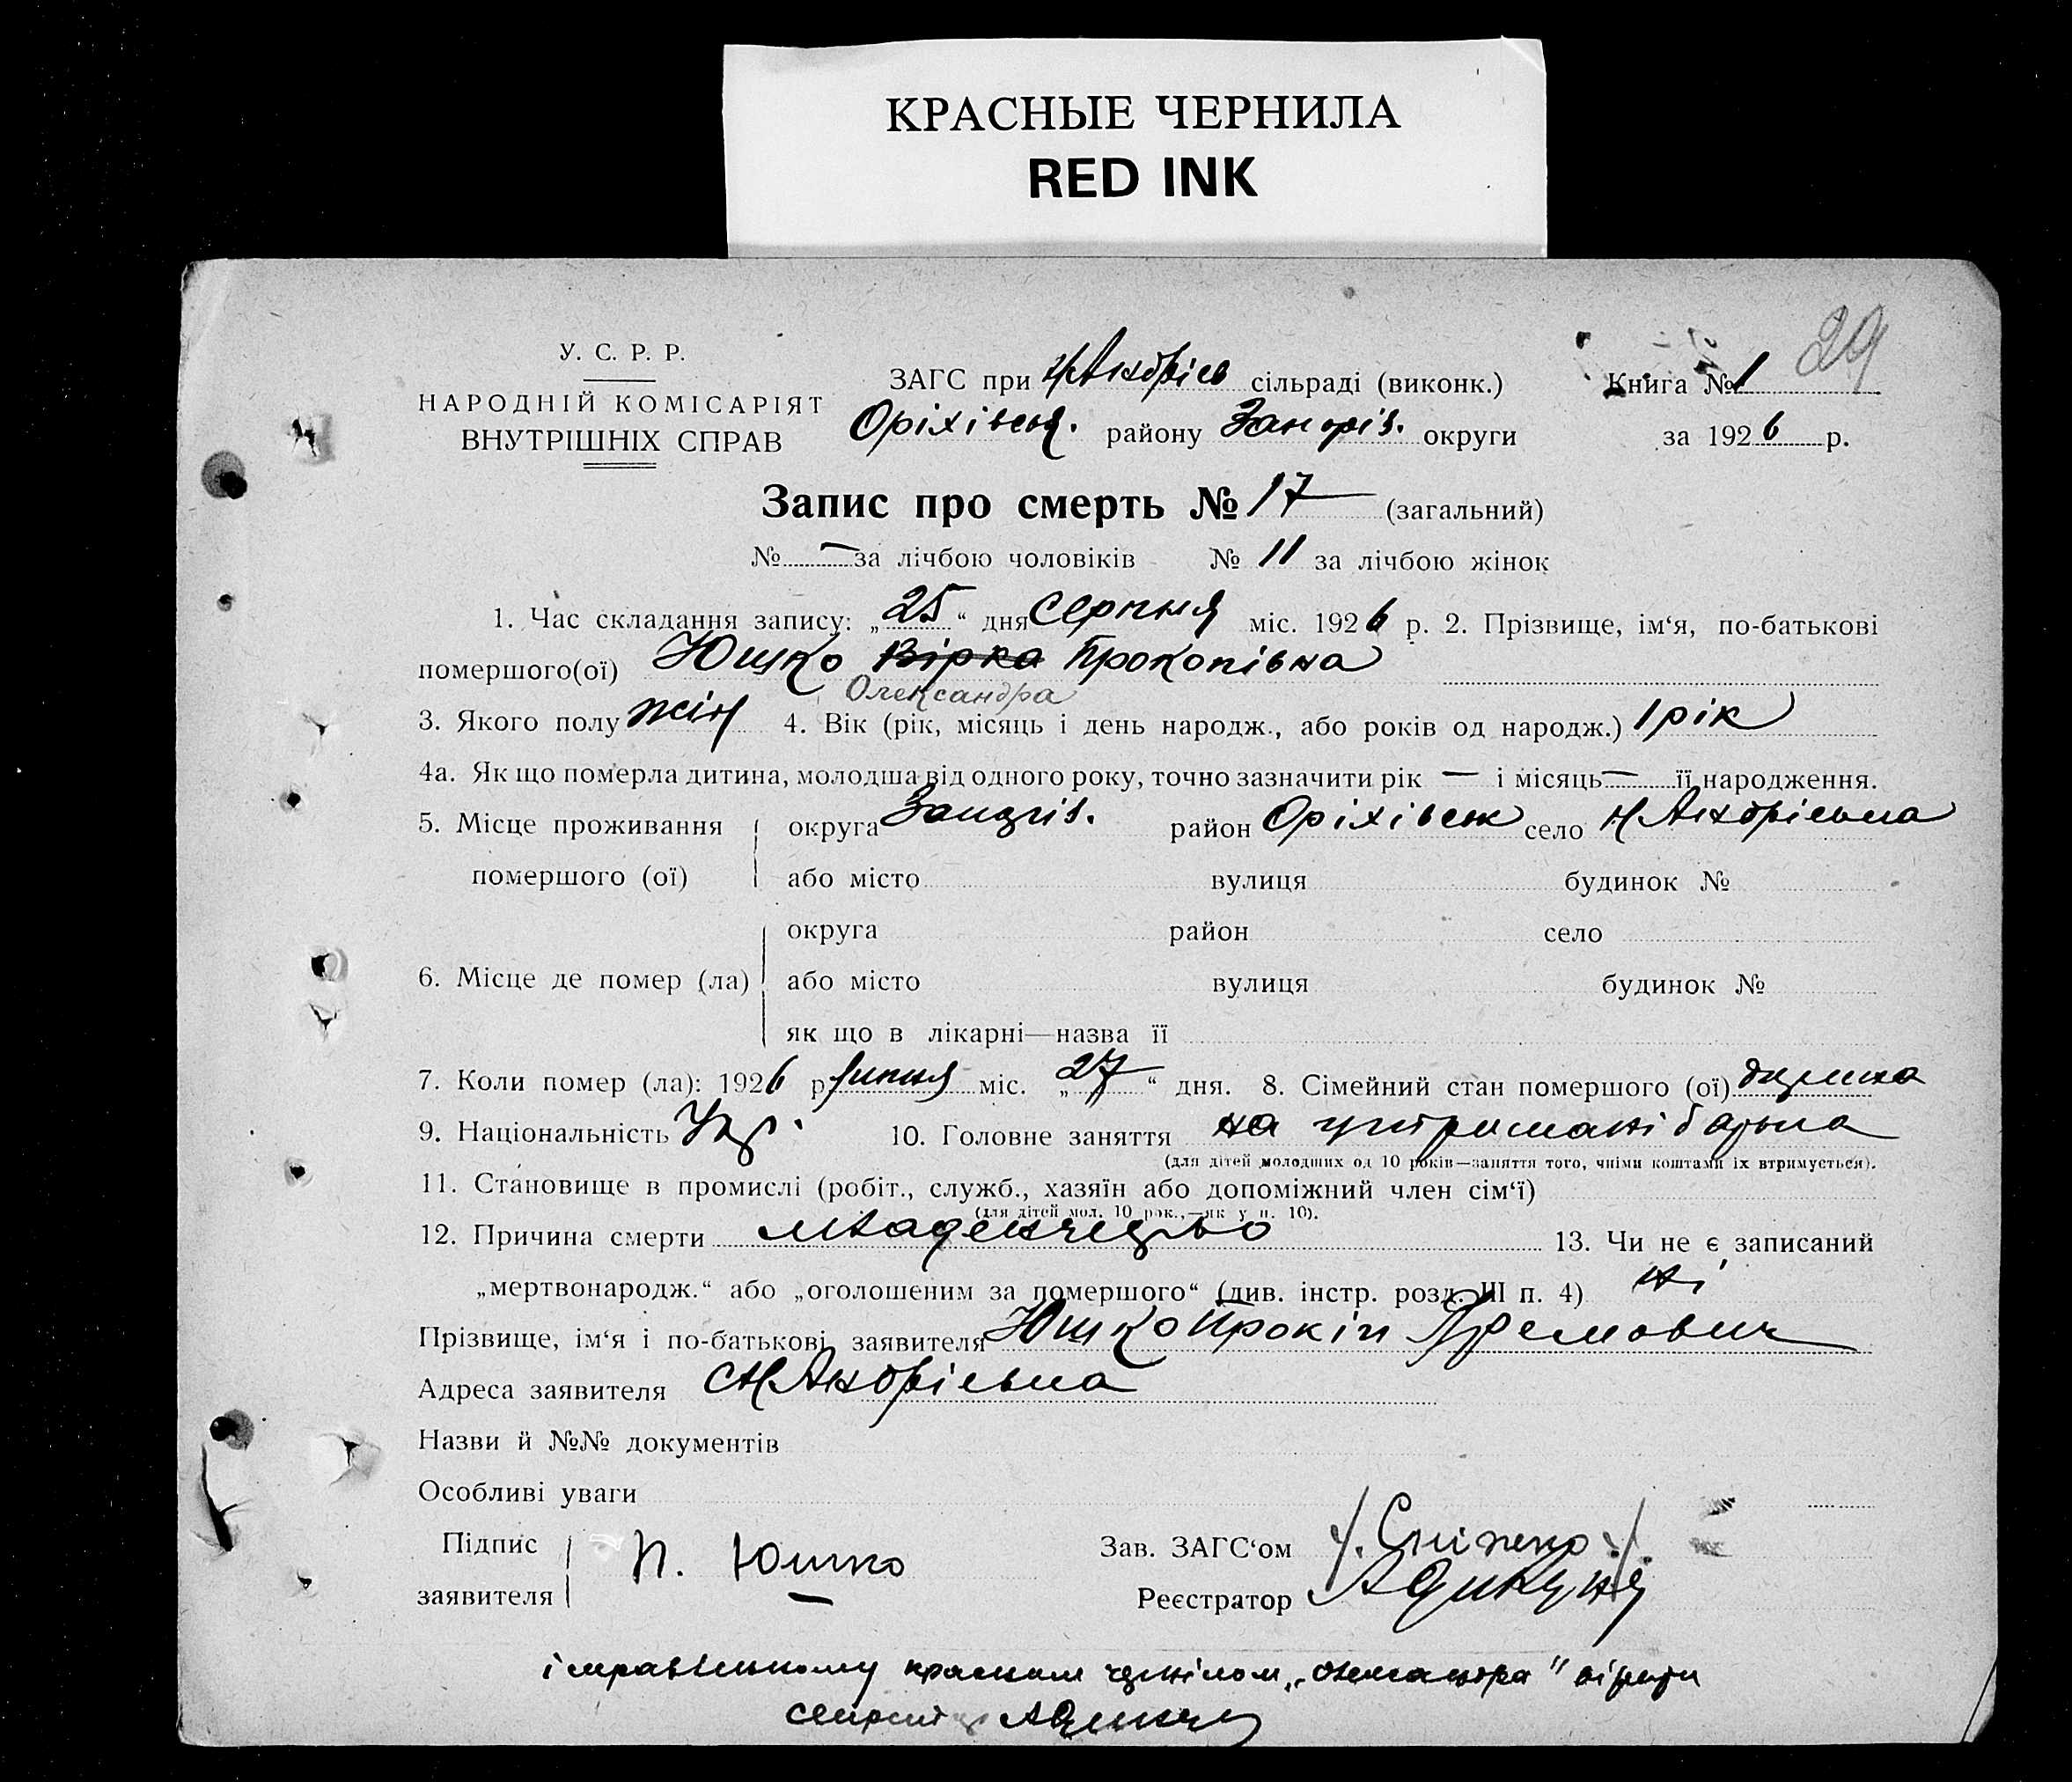 КРАСНЫЕ ЧЕРНИЛА
RED INK
29
У. С. Р. Р.
НАРОДНІЙ КОМІСАРІЯТ
ВНУТРІШНІХ СПРАВ
ЗАГС при Н Андрієв сільраді (виконк.)
Оріхівськ. району Запоріз. округи
Книга № 1
за 1926 р.
Запис про смерть № 17 (загальний)
№ — за лічбою чоловіків № 11 за лічбою жінок
1. Час складання запису: „25“ дня серпня міс. 1926 р. 2. Прізвище, ім‘я, по-батькові
помершого(ої) Юшко Вірка Прокопівна
Олександра
3. Якого полу жін 4. Вік (рік, місяць і день народж., або років од народж.) 1 рік
4а. Як що померла дитина, молодша від одного року, точно зазначити рік — і місяць — її народження.
5. Місце проживання округа Запоріз. район Оріхівськ село Н Андрієвка
помершого (ої) або місто вулиця будинок №
округа район село
6. Місце де помер (ла) або місто вулиця будинок №
як що в лікарні—назва її
7. Коли помер (ла): 1926 р липня міс. „27“ дня. 8. Сімейний стан помершого (ої) дитина
9. Національність Укр. 10. Головне заняття на утриманні батька
(для дітей молодших од 10 років—заняття того, чиїми коштами їх втримується).
11. Становище в промислі (робіт., служб., хазяїн або допоміжний член сім‘ї)
(для дітей мол. 10 рок.,—як у п. 10).
12. Причина смерти младенчество 13. Чи не є записаний
„мертвонародж.“ або „оголошеним за помершого“ (див. інстр. розд. III п. 4) ні
Прізвище, ім‘я і по-батькові заявителя Юшко Прокіп Яремович
Адреса заявителя с Н Андрієвка
Назви й №№ документів
Особливі уваги
Підпис
заявителя П. Юшко
Зав. ЗАГС‘ом
Реєстратор
красним чернілом „Олександра“ вірити